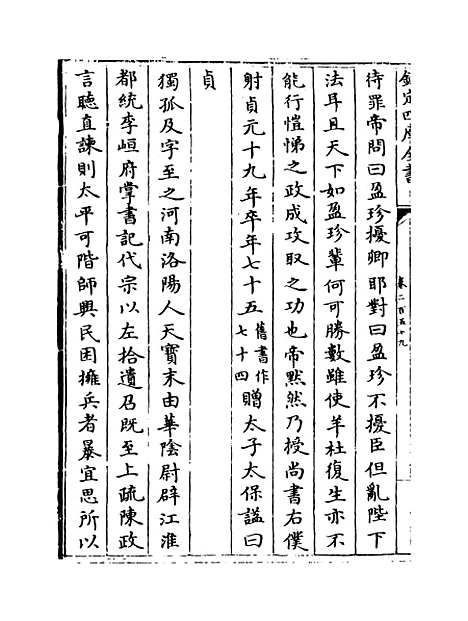 欽定四庫全書
卷二百五十九
待罪帝問曰盈珍擾卿耶對曰盈珍不擾臣但亂陛下
法耳且天下如盈珍輩何可勝數雖使羊杜復生亦不
能行愷悌之政成攻取之功也帝默然乃授尚書右僕
射貞元十九年卒年七十五舊書作七十四贈太子太保諡曰
貞
獨孤及字至之河南洛陽人天寶末由華陰尉辟江淮
都統李峘府掌書記代宗以左拾遺召既至上疏陳政
言聽直諫則太平可階師興民困擁兵者暴宜思所以